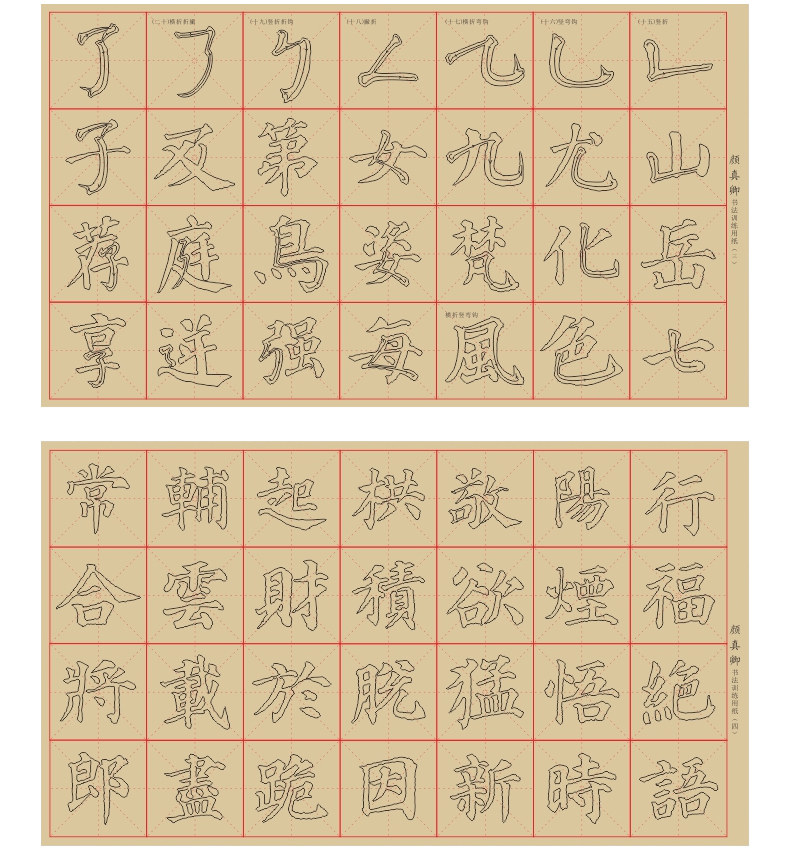 颜真卿书法训练用纸(三)
(十五)竖折
山岳七
(十六)竖弯钩
乚尤化色
(十七)横折弯钩
九梵
横折竖弯钩
風
(十八)撇折
女姿每
(十九)竖折折钩
第鳥强
(二十)横折折撇
及庭
了子荐享
颜真卿书法训练用纸(四)
行福絶語
陽煙悟時
敬欲猛新
拱積脱因
起財於跪
輔雲載盡
常合將郎